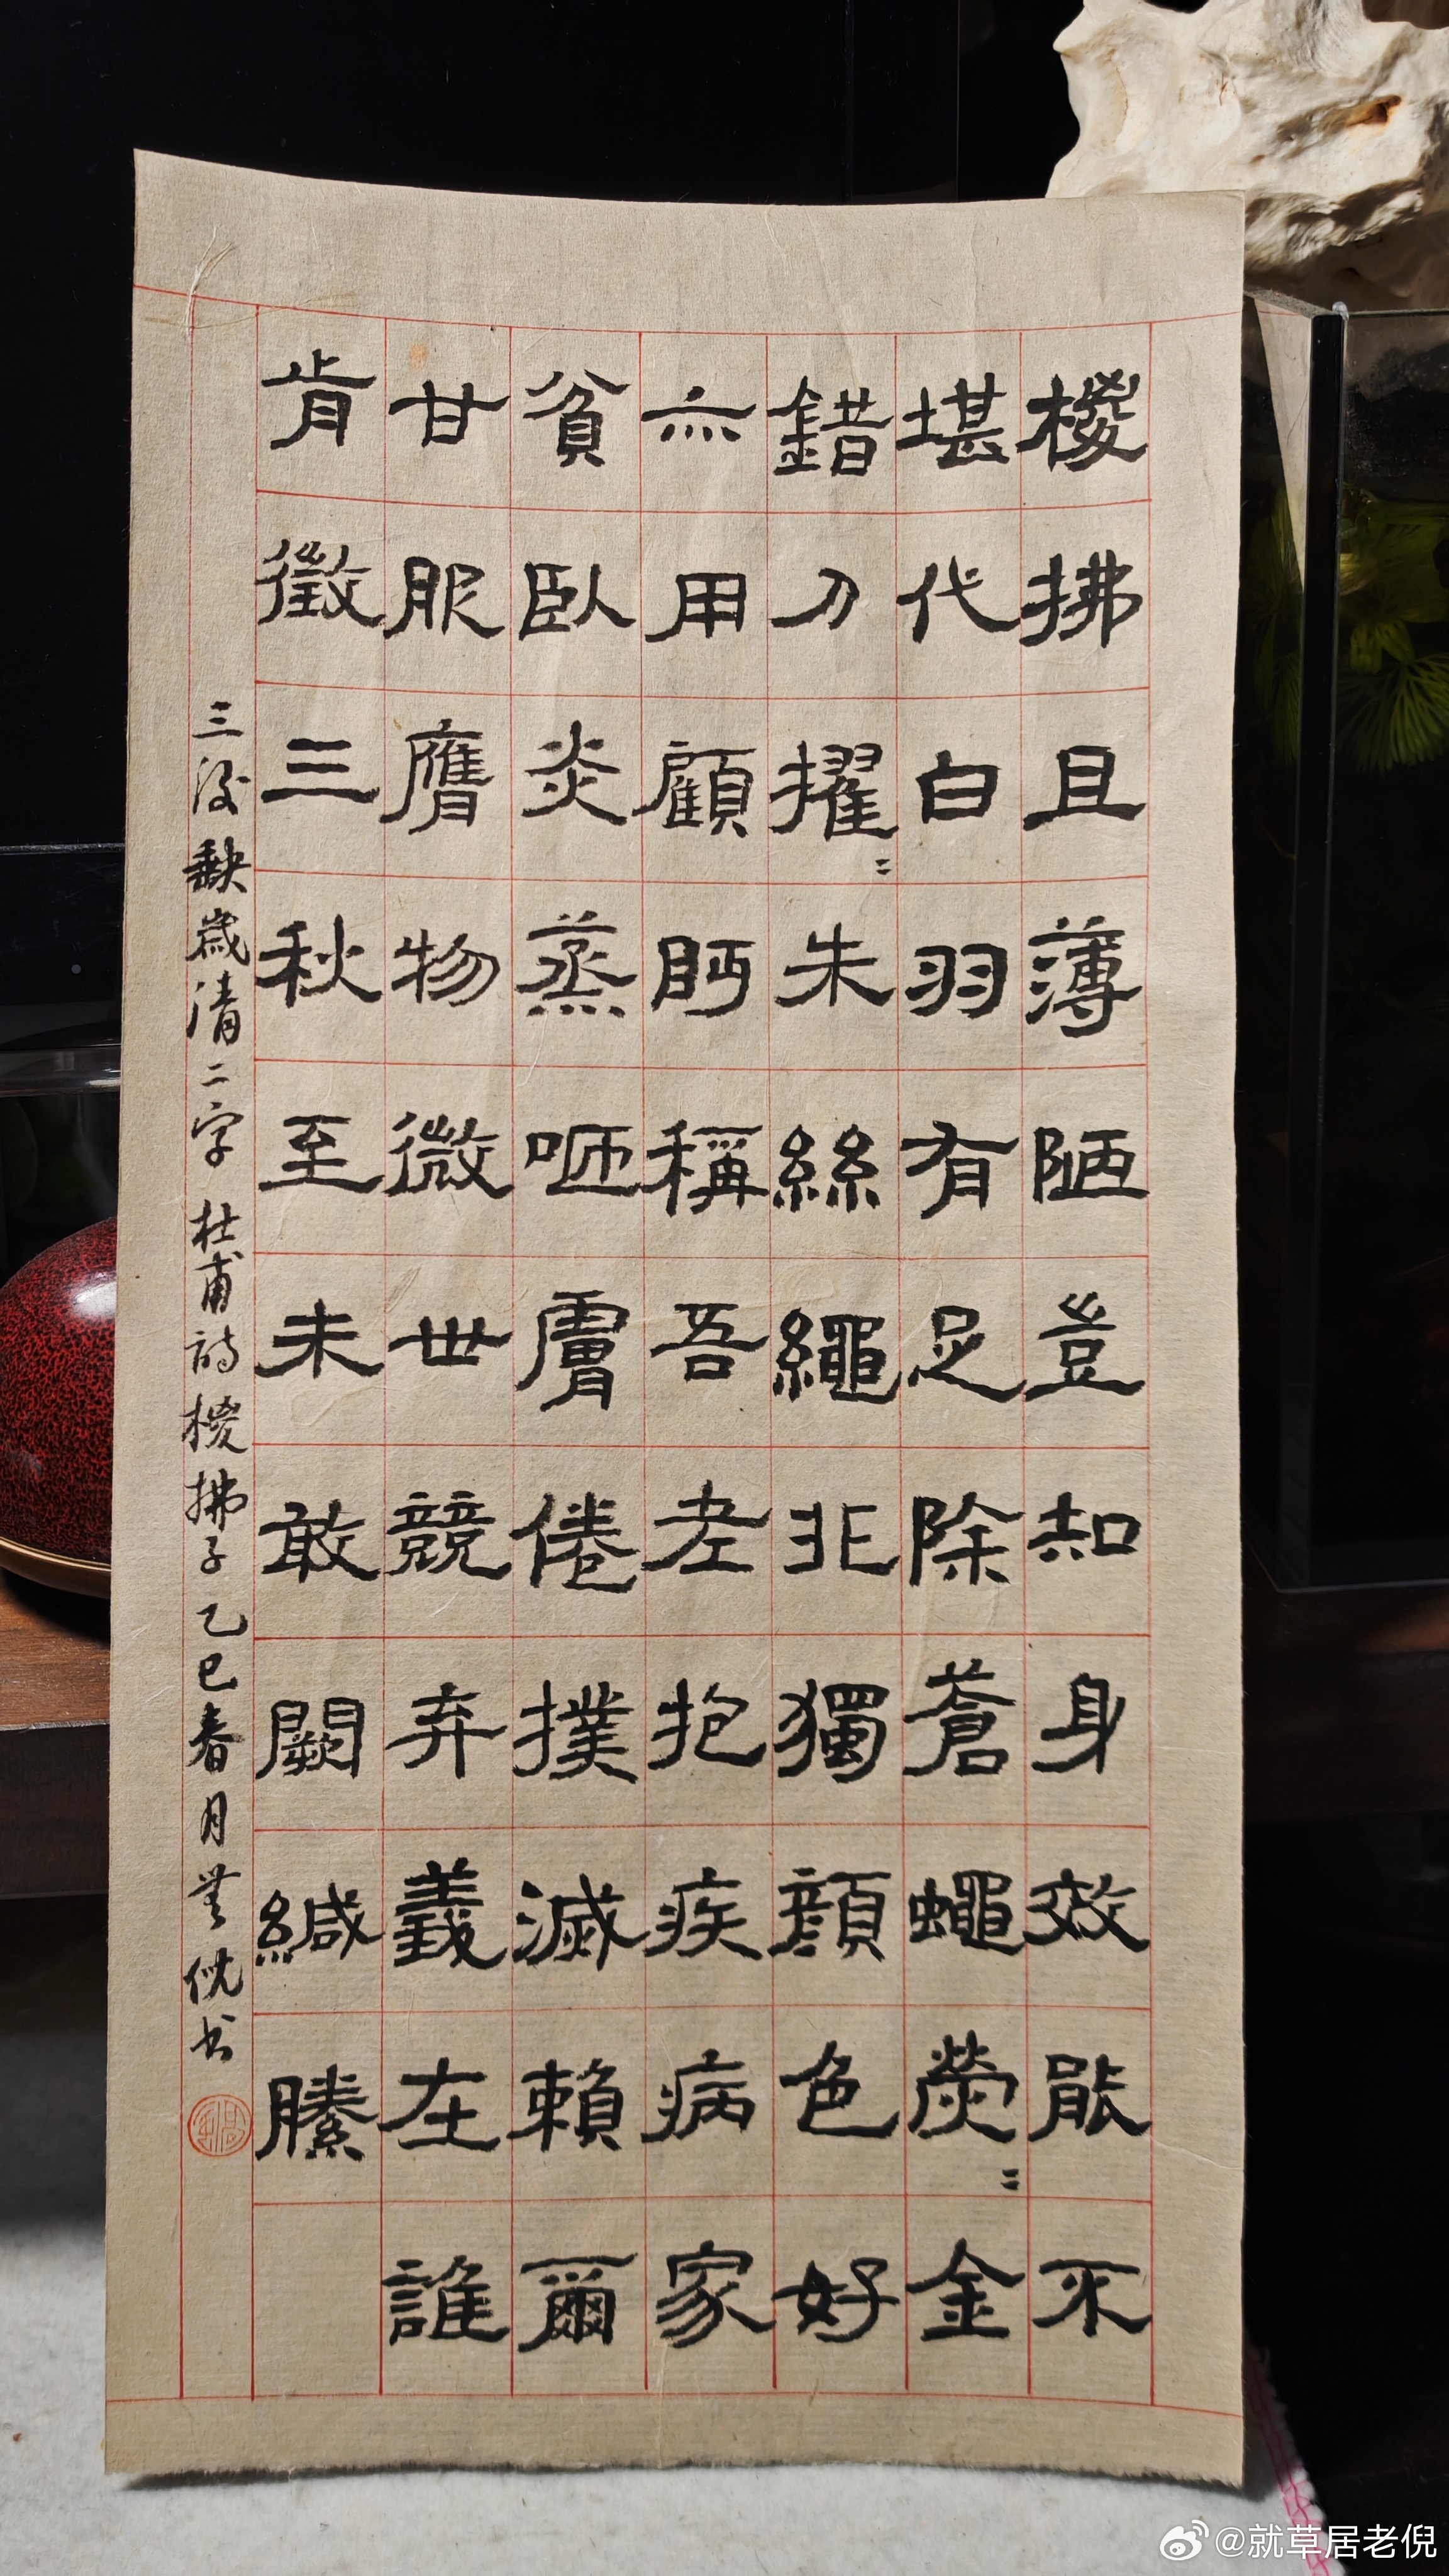 椶拂且薄陋豈知身效能不
堪代白羽有足除蒼蠅熒〻金
錯刀擢〻朱絲繩非獨顏色好
亦用顧眄稱吾老抱疾病家
貧臥炎蒸咂膚倦撲滅賴爾
甘服膺物微世競弃義在誰
肯徵三秋至未敢闕緘縢
三後缺歲清二字 杜甫詩椶拂子乙巳春月 倪书
@就草居老倪